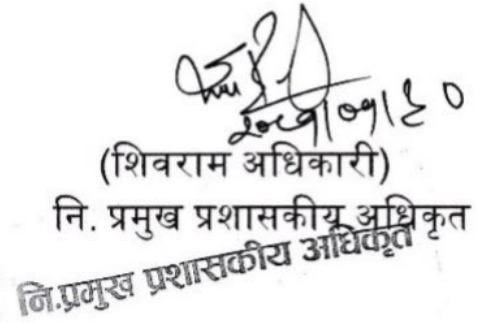 २०८१।०१।२०
(शिवराम अधिकारी)
नि. प्रमुख प्रशासकीय अधिकृत
नि.प्रमुख प्रशासकीय अधिकृत